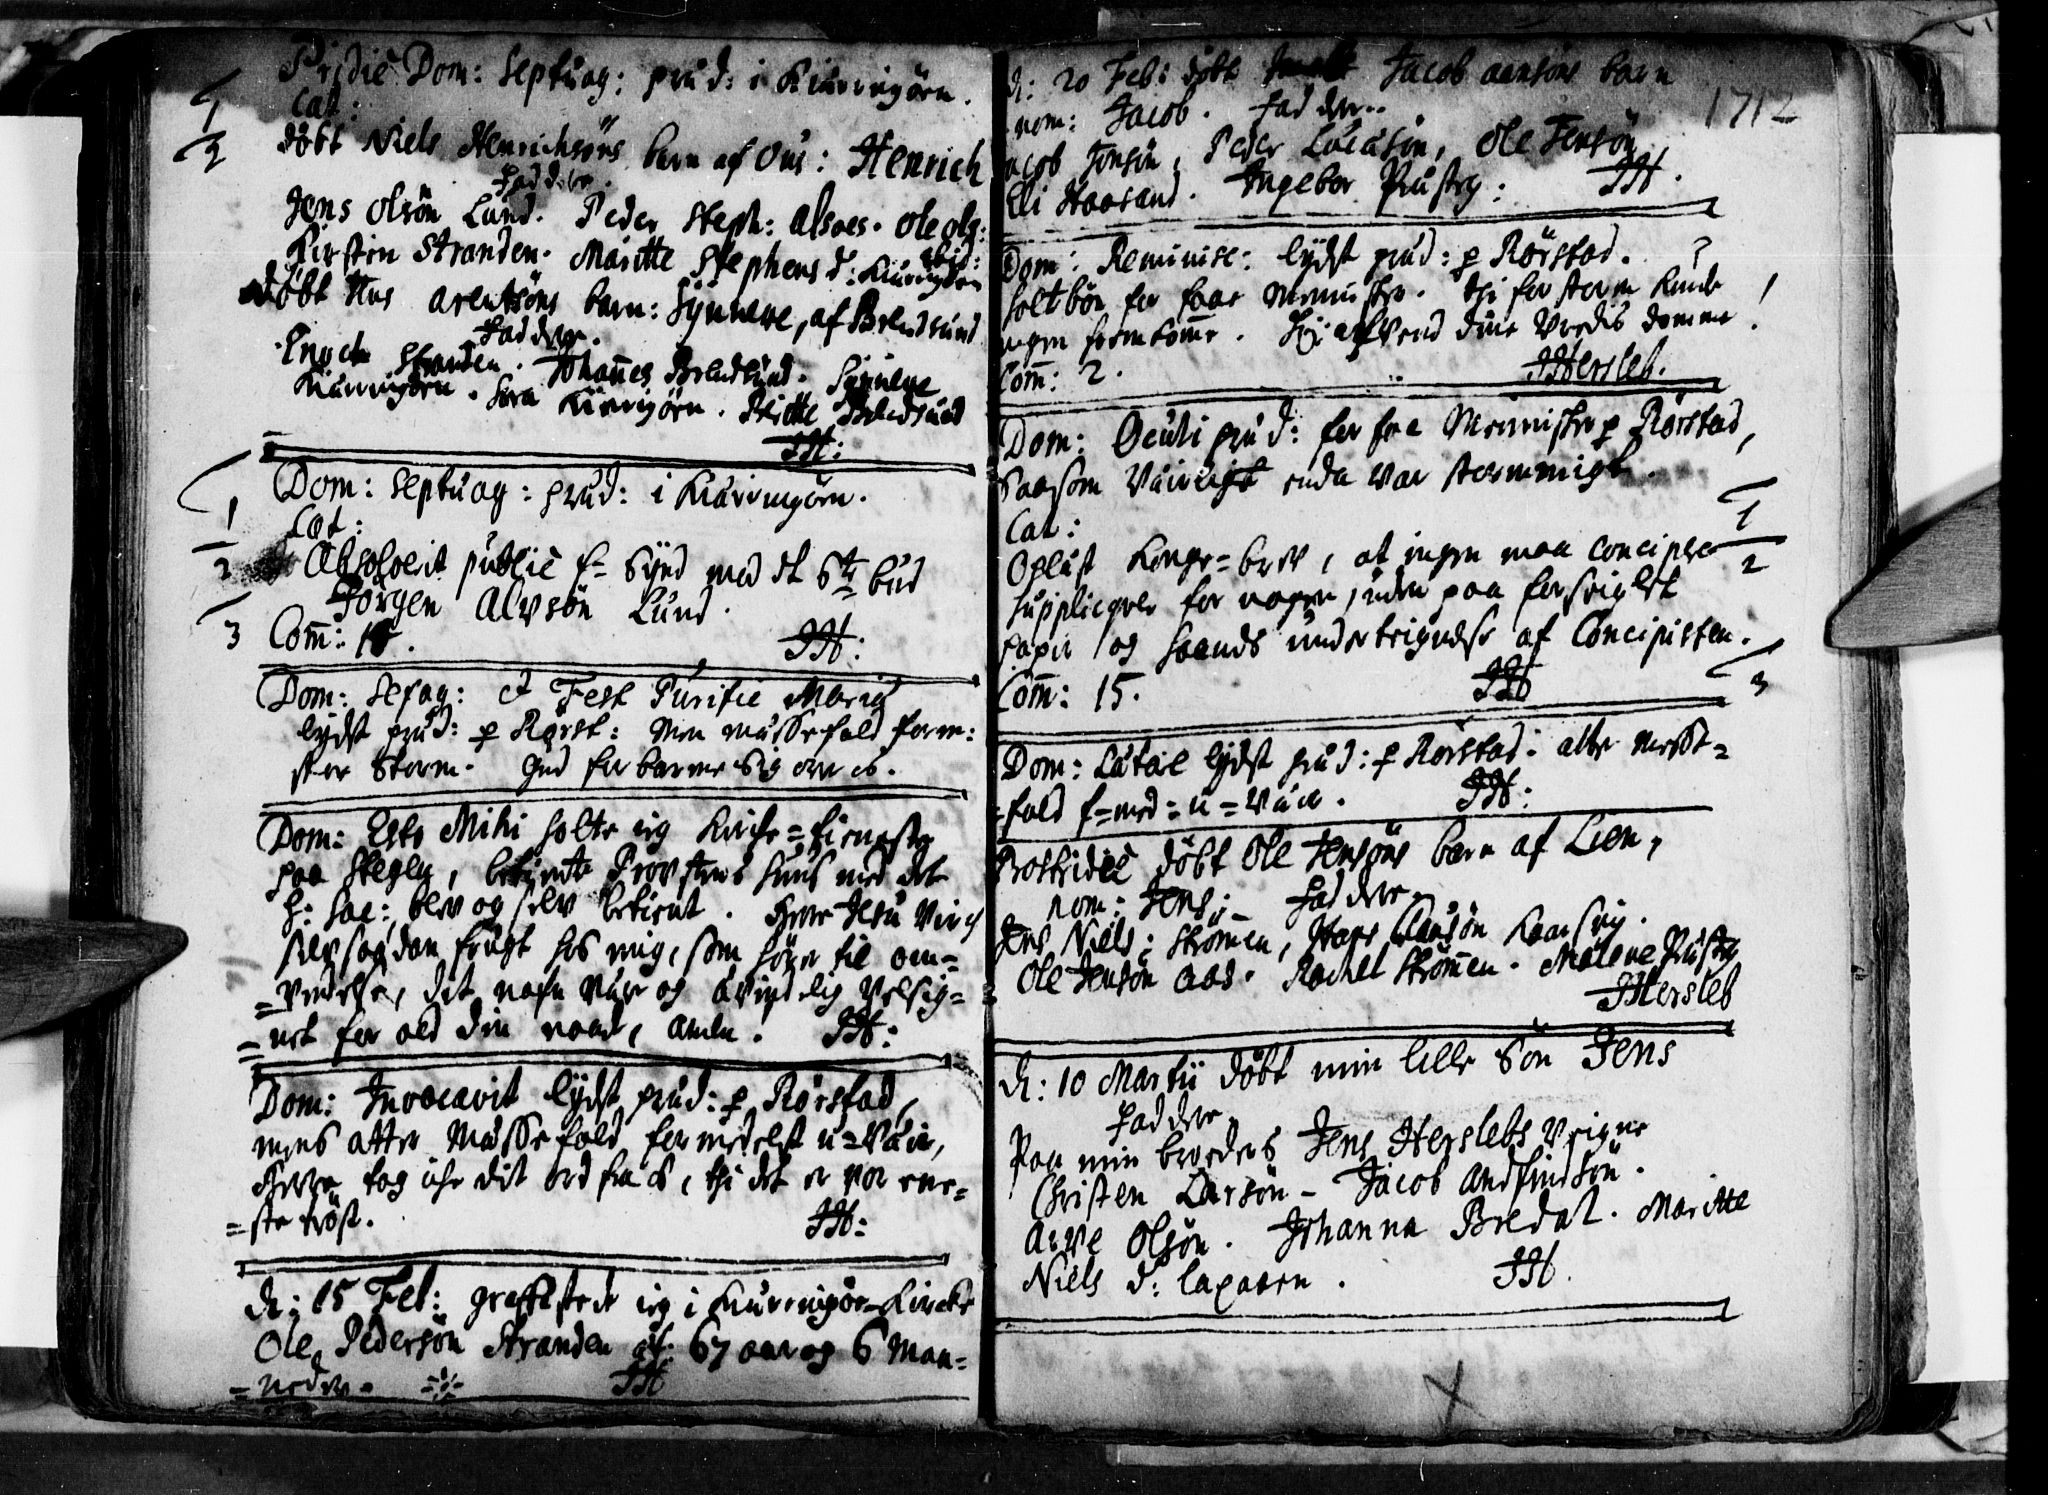 Pridie Dom: Septuag: præd: i Kierringörn.
Cat:
1
2
döbt Niels Henrichsöns barn af Ons: Henrich
Fadder.
Jens Olsön Lund. Peder Steph: Alsoes. Ole Ols:
Kirsten Stranden. Maritte Stephens d: Kierringörn
döbt Hans Arentsöns barn: Synneve, af Brendsund
Fadder.
Enoch Stranden. Johañes Brendsund. Synneve
Kierringörn. Sara Kierringörn. Biritte Brendsund
JH:
Dom: Septuag: præd: i Kierringörn.
1
Cat:
2
Absolverit publicè f= Synd med det 6te bud
Jörgen Alvsön Lund.
3
Com̃: 18. JH:
Dom: Sexag: et Fest Purific Mariæ
lydst præd: p Rørst: men Messefald form:
stor Storm. Gud forbarme sig over os.
Dom: Esto Mihi holte ieg Kircke=tieneste
paa Stegen, betiente Provstens huus med det
H: Sac: blev og selv betient. Herre Jesu Virck
selv saadan frugt hos mig, som hörer til om=
=vendelse, det nafn være og ævindelig velsig=
=net for ald din naade, Amen. JH:
Dom: Invocavit lydst præd: p Rörstad,
mens atter Messefald formedelst u=Veir,
Herre tag icke dit ord fra os, thi det er vor ene=
=ste tröst. JH:
d: 15 Feb: græffestede ieg i Kierringöe Kircke
Ole Pedersön Stranden æt: 67 aar og 6 Maa=
=neder. JH
1712
d: 20 Feb: döbt Jacob Aansöns barn
nom: Jacob. Fadder..
Jacob Jonsön, Peder Lucasön, Ole Jensön,
Eli Haasand. Ingebor Presteg: JH.
Dom: Reminisc: lydst præd: p Rörstad.
holt bön for faae Mennisker. thi for storm kunde
ingen fremkom̃e. H: afvend dine Vredis domme!
Com̃: 2. JHersleb.
Dom: Oculi præd: for faa Mennisker p Rörstad,
saasom Veirliget enda var stormmigt.
Cat:
1
2
Oplæst Konge=brev, at ingen maa concipere
Suppliqver for nogen, uden paa forseiglet
papir og haands underteignelse af Concipisten.
3
Com̃: 15. JH
Dom: Lætare lydst præd: p Rörstad: atter Messe=
=fald f=med: u=Veir. JH:
Postridie döbt Ole Jensöns barn af Lien,
nom: Jens; Fadder.
Jens Niels: Strömen, Hans Clausön Kaasvig.
Ole Jensön Aas. Rachel Strömen. Malene Prestg
JHersleb
d: 10 Martii döbt min lille Sön Jens
Fadder.
Paa min broders Jens Herslebs Veigne
Christen Larsön - Jacob Andfindsön.
Arve Olsön. Johanna Bredal. Maritte
Niels d: Laxaaen. JH.